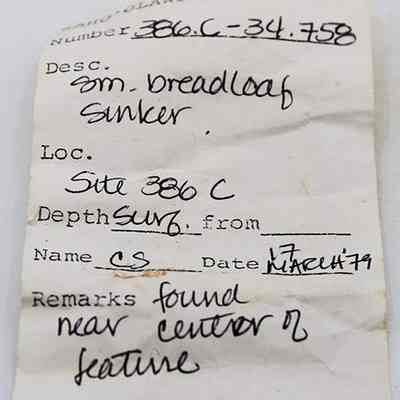 Number 386.C-34.758
Desc.
sm. breadloaf
sinker
Loc.
Site 386 C
Depth Surf. from
Name CS Date 17 MARCH '79
Remarks found
near center of
feature